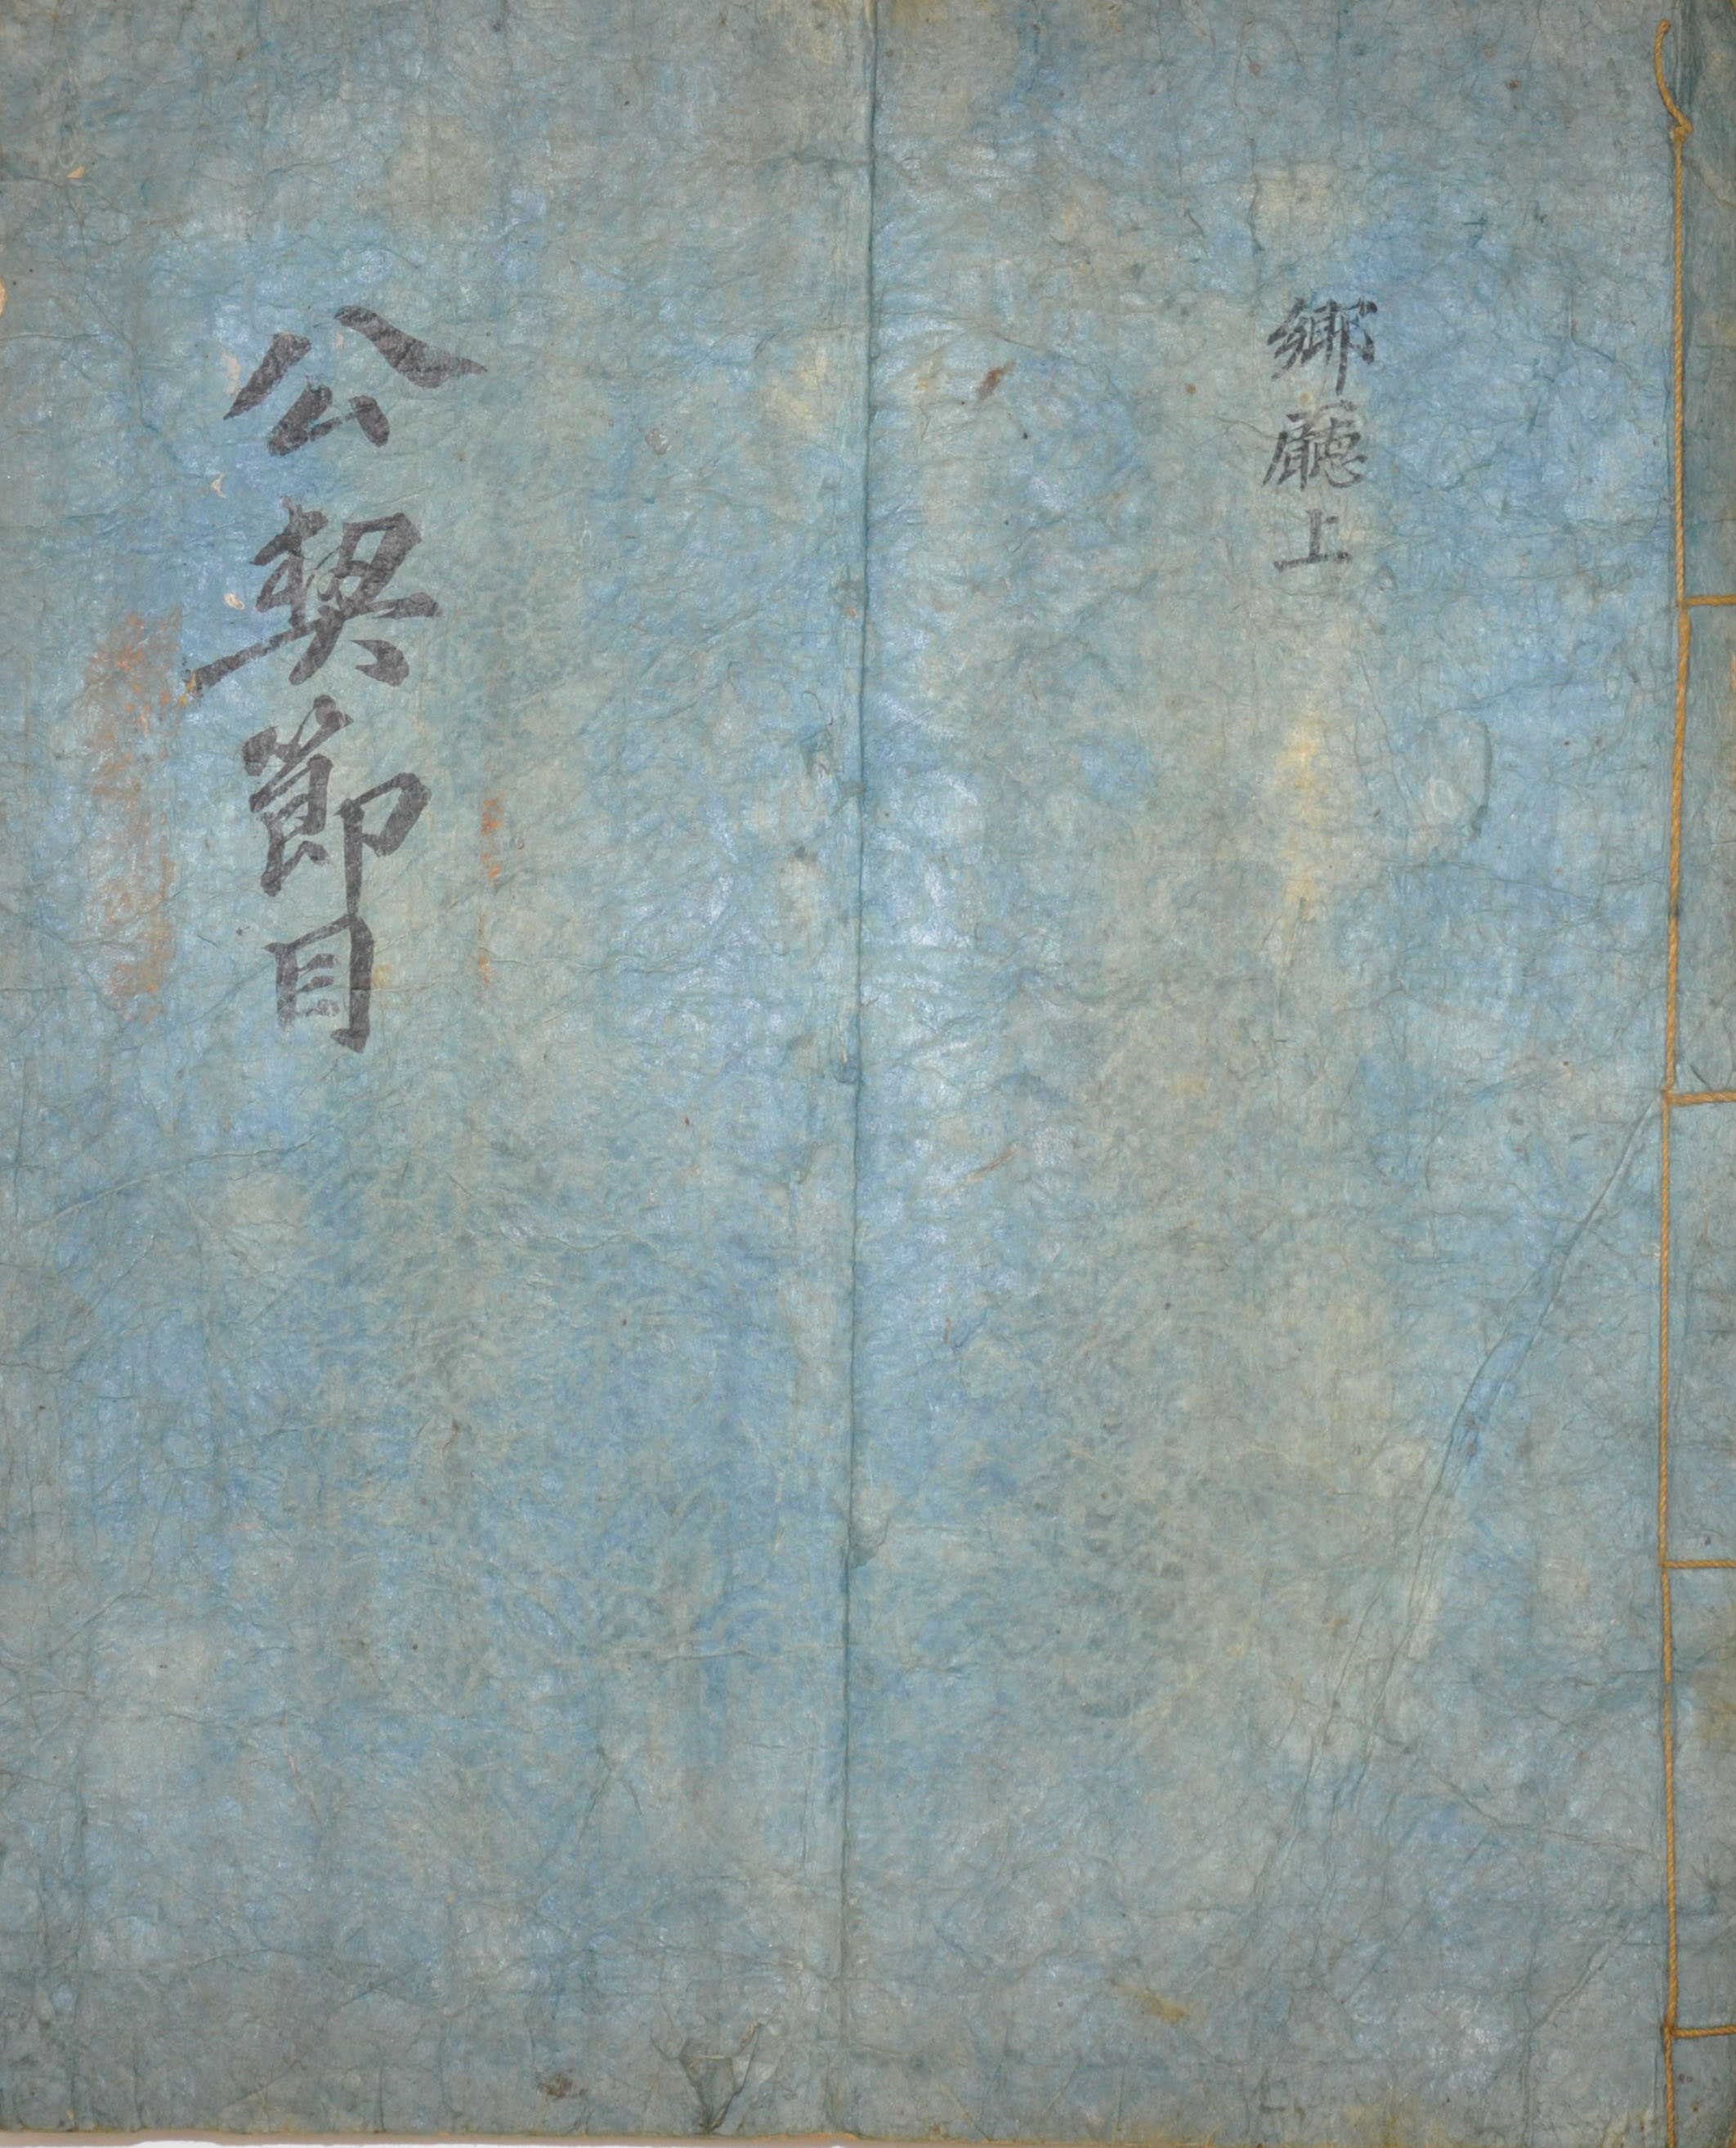 鄕廳上
公契節目